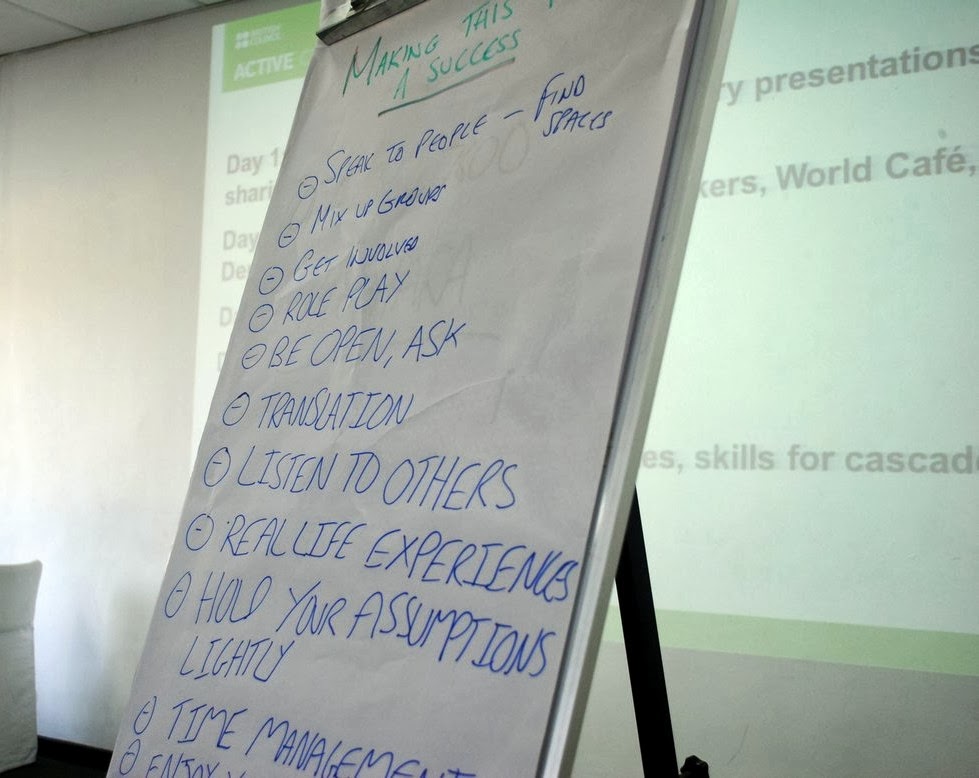 MAKING THIS
A SUCCESS
SPEAK TO PEOPLE – FIND
SPACES
MIX UP GROUPS
GET INVOLVED
ROLE PLAY
BE OPEN, ASK
TRANSLATION
LISTEN TO OTHERS
REAL LIFE EXPERIENCES
HOLD YOUR ASSUMPTIONS
LIGHTLY
TIME MANAGEMENT
ENJOY
BRITISH
COUNCIL
ACTIVE
Day 1
shari
Day
De
ry presentations
kers, World Café,
es, skills for cascad